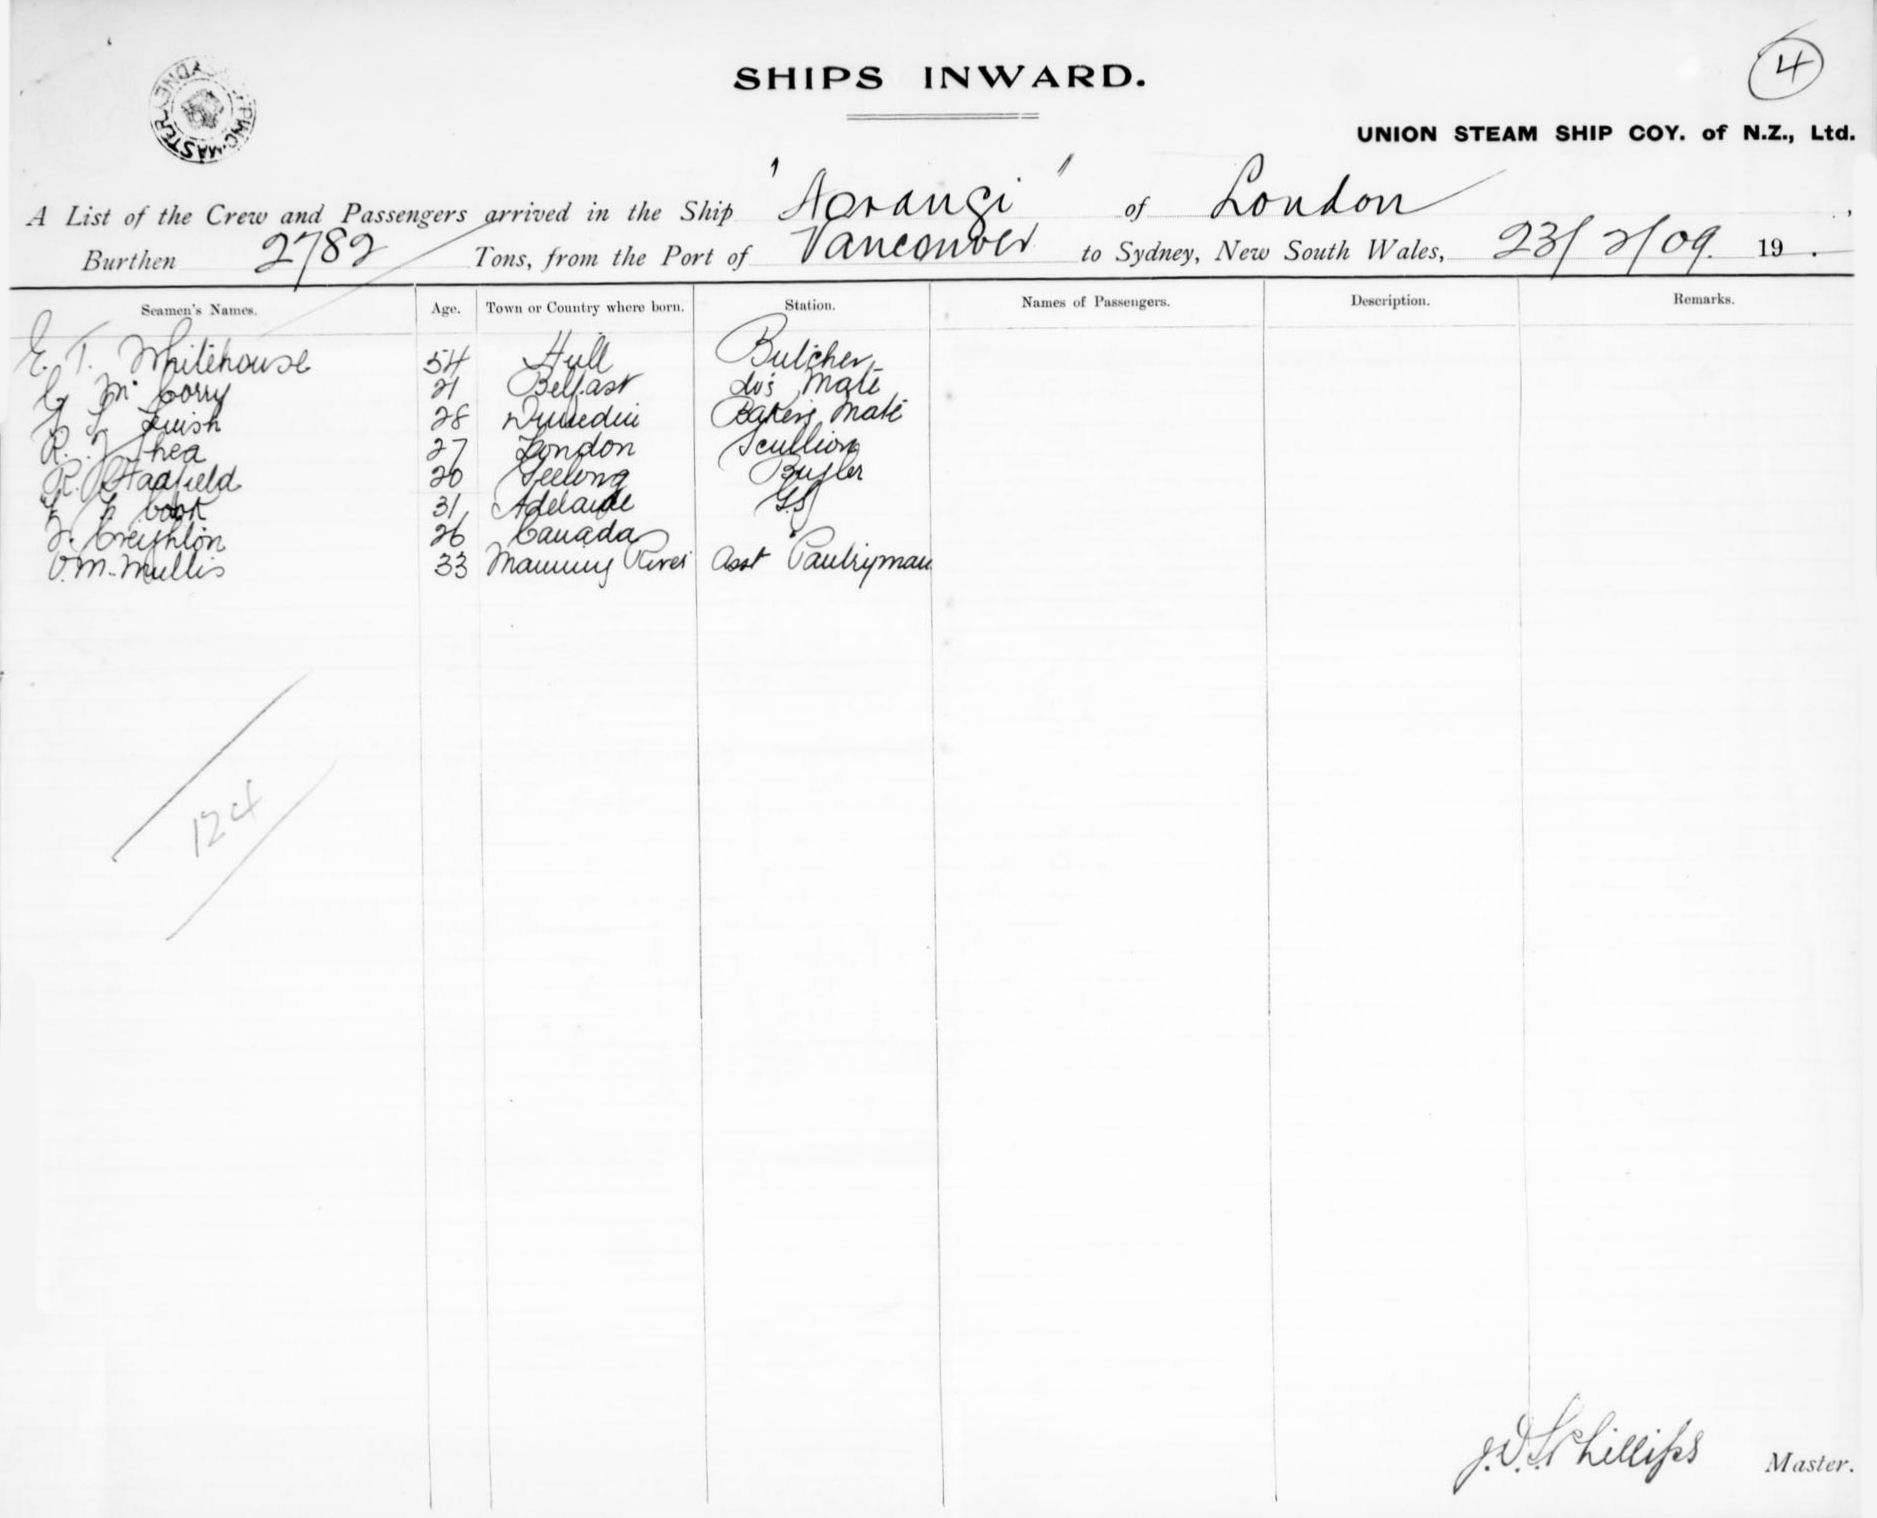 SHIPS INWARD.
4
UNION STEAM SHIP COY. of N.Z., Ltd.
A List of the Crew and Passengers arrived in the Ship "Aorangi" of London,
Burthen 2782 Tons, from the Port of Vancouver to Sydney, New South Wales, 23/2/09. 19 .
Seamen's Names. Age. Town or Country where born. Station. Names of Passengers. Description. Remarks.
E. T. Whitehouse 54 Hull Butcher
McCorry 21 Belfast do's Mate
28 Dunedin Bakers Mate
R. J. Shea 27 London Scullion
R. Hadfield 20 Geelong Bugler
Cook 31 Adelaide G.S
Creighton 26 Canada "
O. M. Mullis 33 Manning River Asst Pantryman
124
J. D. S. Phillips Master.